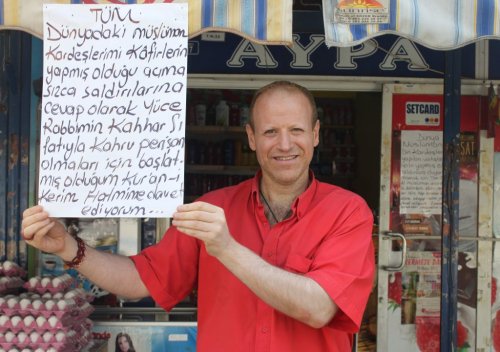 TÜM
Dünyadaki müslüman
Kardeşlerimi Kâfirlerin
yapmış olduğu acıma
sızca saldırılarına
cevap olarak Yüce
Rabbimin Kahhar Sı
fatıyla Kahru perişan
olmaları için başlat-
mış olduğum Kuran-ı
Kerim Hatmime davet
ediyorum...
AYPA
SETCARD